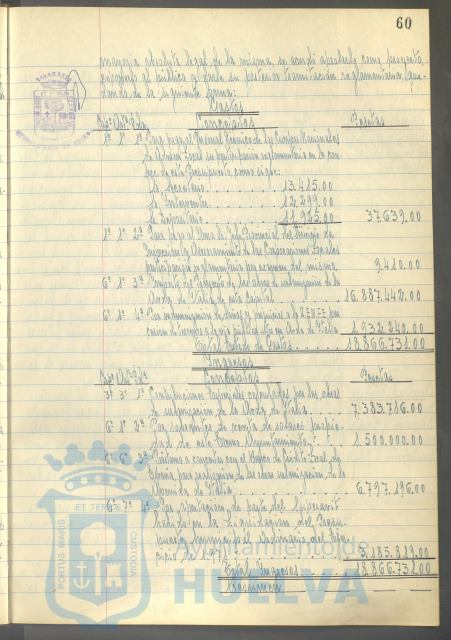 60
mayoría absoluta legal de la misma, se acordó aprobarlo como proyecto,
exponerlo al público y darle su posterior tramitación reglamentaria, que-
dando de la siguiente forma:
Gastos
Conceptos Pesetas
1º 1º 1º Para pago al Personal Técnico de los Cuerpos Nacionales
de Admón Local su participación reglamentaria en la
de este Presupuesto, como sigue:
Sr. Secretario 13.415.00
Sr. Interventor 12.299.00
Sr. Depositario 11.925.00 37.639.00
1º 1º 2º Para pago al Jefe Provincial del Servicio de
Inspección y Asesoramiento de las Corporaciones Locales
participación reglamentaria por examen del mismo. 9.410.00
6º 1º 3º Importe del proyecto de las obras de urbanización de la
Avda de Italia de esta Capital 16.887.442.00
6º 1º 4º Por indemnización de daños y perjuicios a la RENFE por
cesión de terrenos a la vía pública sitos en Avda de Italia 1.932.240.00
Total Estado de Gastos 18.866.731.00
Ingresos
Conceptos Pesetas
3º 3º 1º Contribuciones Especiales computadas por las obras
de urbanización de la Avda de Italia 7.383.716.00
6º 1º 2º Por venta de solares propie-
dad de este Excmo Ayuntamiento 1.500.000.00
6º 6º 3º Préstamo a concertar con el Banco de Crédito Local de
España, para las obras urbanización de la
Avenida de Italia 6.797.196.00
6º 7º 1º Por aportación de parte del Superavit
en la Liquidación del Presu-
puesto Municipal Ordinario del Ejer-
cicio de 1972 3.185.819.00
Total Ingresos 18.866.731.00
Resumen
PORTUS MARIS ET TERRAE CUSTODIA
Ayuntamiento de
HUELVA